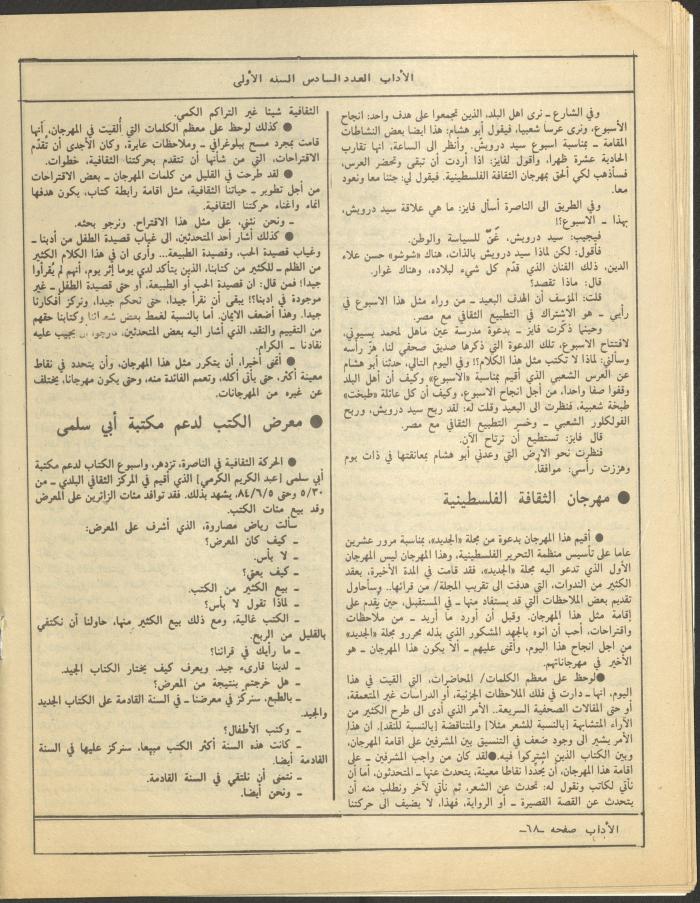 الآداب العدد السادس السنه الأولى
وفي الشارع ـ نرى اهل البلد، الذين تجمعوا على هدف واحد: انجاح
الأسبوع، ونرى عرسا شعبيا، فيقول أبو هشام: هذا ايضا بعض النشاطات
المقامة ـ بمناسبة أسبوع سيد درويش. وأنظر الى الساعة، انها تقارب
الحادية عشرة ظهرا، وأقول لفايز: اذا أردت أن تبقى وتحضر العرس،
فسأذهب لكي ألحق بمهرجان الثقافة الفلسطينية. فيقول لي: جئنا معا ونعود
معا.
وفي الطريق الى الناصرة أسأل فايز: ما هي علاقة سيد درويش،
بهذا ـ الاسبوع؟!
فيجيب: سيد درويش، غنّى للسياسة والوطن.
فأقول: لكن لماذا سيد درويش بالذات، هناك «شوشو» حسن علاء
الدين، ذلك الفنان الذي قدّم كل شيء لبلاده، وهناك غوار.
قال: ماذا تقصد؟
قلت: المؤسف أن الهدف البعيد ـ من وراء مثل هذا الاسبوع في
رأيي ـ هو الاشتراك في التطبيع الثقافي مع مصر.
وحينها ذكّرت فايز ـ بدعوة مدرسة عين ماهل لمحمد بسيوني،
لافتتاح الاسبوع، تلك الدعوة التي ذكرها صديق صحفي لنا، هزّ رأسه
وسألني: لماذا لا تكتب مثل هذا الكلام؟! وفي اليوم التالي، حدثنا أبو هشام
عن العرس الشعبي الذي أقيم بمناسبة «الاسبوع» وكيف أن أهل البلد
وقفوا صفا واحدا، من أجل انجاح الاسبوع، وكيف أن كل عائلة «طبخت»
طبخة شعبية، فنظرت الى البعيد وقلت له: لقد ربح سيد درويش، وربح
الفولكلور الشعبي ـ وخسر التطبيع الثقافي مع مصر.
قال فايز: تستطيع أن ترتاح الآن.
فنظرت نحو الأرض التي وعدني أبو هشام بمعانقتها في ذات يوم
وهززت رأسي: موافقا.
● مهرجان الثقافة الفلسطينية
● أقيم هذا المهرجان بدعوة من مجلة «الجديد»، بمناسبة مرور عشرين
عاما على تأسيس منظمة التحرير الفلسطينية، وهذا المهرجان ليس المهرجان
الأول الذي تدعو اليه مجلة «الجديد»، فقد قامت في المدة الأخيرة، بعقد
الكثير من الندوات، التي هدفت الى تقريب المجلة/ من قرائها.. وسأحاول
تقديم بعض الملاحظات التي قد يستفاد منها ـ في المستقبل، حين يُقدم على
إقامة مثل هذا المهرجان. وقبل أن أورد ما أريد ـ من ملاحظات
واقتراحات، أحب أن انوه بالجهد المشكور الذي بذله محررو مجلة «الجديد»
من اجل انجاح هذا اليوم، وأتمنى عليهم ـ ألا يكون هذا المهرجان ـ هو
الأخير في مهرجاناتهم.
●لوحظ على معظم الكلمات/ المحاضرات، التي القيت في هذا
اليوم، انها ـ دارت في فلك الملاحظات الجزئية، أو الدراسات غير المتعمقة،
أو حتى المقالات الصحفية السريعة.. الأمر الذي أدى الى طرح الكثير من
الأراء المتشابهة [بالنسبة للشعر مثلا] والمتناقضة [بالنسبة للنقد]. ان هذا
الأمر يشير الى وجود ضعف في التنسيق بين المشرفين على اقامة المهرجان،
وبين الكتاب الذين اشتركوا فيه.●لقد كان من واجب المشرفين ـ على
إقامة هذا المهرجان، أن يُحدّدا نقاطا معينة، يتحدث عنها ـ المتحدثون، أما أن
نأتي لكاتب ونقول له: تحدث عن الشعر، ثم نأتي لآخر ونطلب منه أن
يتحدث عن القصة القصيرة ـ أو الرواية، فهذا، لا يضيف الى حركتنا
الثقافية شيئا غير التراكم الكمي.
● كذلك لوحظ على معظم الكلمات التي ألقيت في المهرجان، أنها
قامت بمجرد مسح ببلوغرافي ـ وملاحظات عابرة، وكان الأجدى أن تُقدّم
الاقتراحات، التي من شأنها أن تتقدم بحركتنا الثقافية، خطوات.
● لقد طرحت في القليل من كلمات المهرجان ـ بعض الاقتراحات
من أجل تطوير ـ حياتنا الثقافية، مثل اقامة رابطة كتاب، يكون هدفها
انماء واغناء حركتنا الثقافية.
ـ ونحن نثني، على مثل هذا الاقتراح. ونرجو بحثه.
● كذلك أشار أحد المتحدثين، الى غياب قصيدة الطفل من أدبنا ـ
وغياب قصيدة الحب، وقصيدة الطبيعة... وأرى أن في هذا الكلام الكثير
من الظلم ـ للكثير من كتابنا، الذين يتأكد لدي يوما إثر يوم، أنهم لم يُقرأوا
جيدا! فمن قال: ان قصيدة الحب أو الطبيعة، أو حتى قصيدة الطفل ـ غير
موجودة في ادبنا؟! يبقى أن نقرأ جيدا، حتى نحكم جيدا، ونركز أفكارنا
جيدا. وهذا أضعف الايمان. أما بالنسبة لغمط بعض شعرائنا وكتابنا حقهم
من التقييم والنقد، الذي أشار اليه بعض المتحدثين، نرجو أن يجيب عليه
نقادنا ـ الكرام.
● أتمنى أخيرا، أن يتكرر مثل هذا المهرجان، وأن يتحدد في نقاط
معينة أكثر، حتى يأتي أكله، وتعمم الفائدة منه، وحتى يكون مهرجانا، يختلف
عن غيره من المهرجانات.
● معرض الكتب لدعم مكتبة أبي سلمى
● الحركة الثقافية في الناصرة، تزدهر، واسبوع الكتاب لدعم مكتبة
أبي سلمى [عبد الكريم الكرمي] الذي أقيم في المركز الثقافي البلدي ـ من
٥/٣٠ وحتى ٨٤/٦/٥، يشهد بذلك. فقد توافد مئات الزائرين على المعرض
وقد بيع مئات الكتب.
سألت رياض مصاروة، الذي أشرف على المعرض:
ـ كيف كان المعرض؟
ـ لا بأس.
ـ كيف يعني؟
ـ بيع الكثير من الكتب.
ـ لماذا تقول لا بأس؟
ـ الكتب غالية، ومع ذلك بيع الكثير منها، حاولنا أن نكتفي
بالقليل من الربح.
ـ ما رأيك في قرائنا؟
ـ لدينا قارىء جيد. ويعرف كيف يختار الكتاب الجيد.
ـ هل خرجتم بنتيجة من المعرض؟
ـ بالطبع، سنركّز في معرضنا ـ في السنة القادمة على الكتاب الجديد
والجيد.
ـ وكتب الأطفال؟
ـ كانت هذه السنة أكثر الكتب مبيعا، سنركز عليها في السنة
القادمة أيضا.
ـ نتمنى أن نلتقي في السنة القادمة.
ـ ونحن أيضا.
الأداب صفحه ـ٦٨ـ